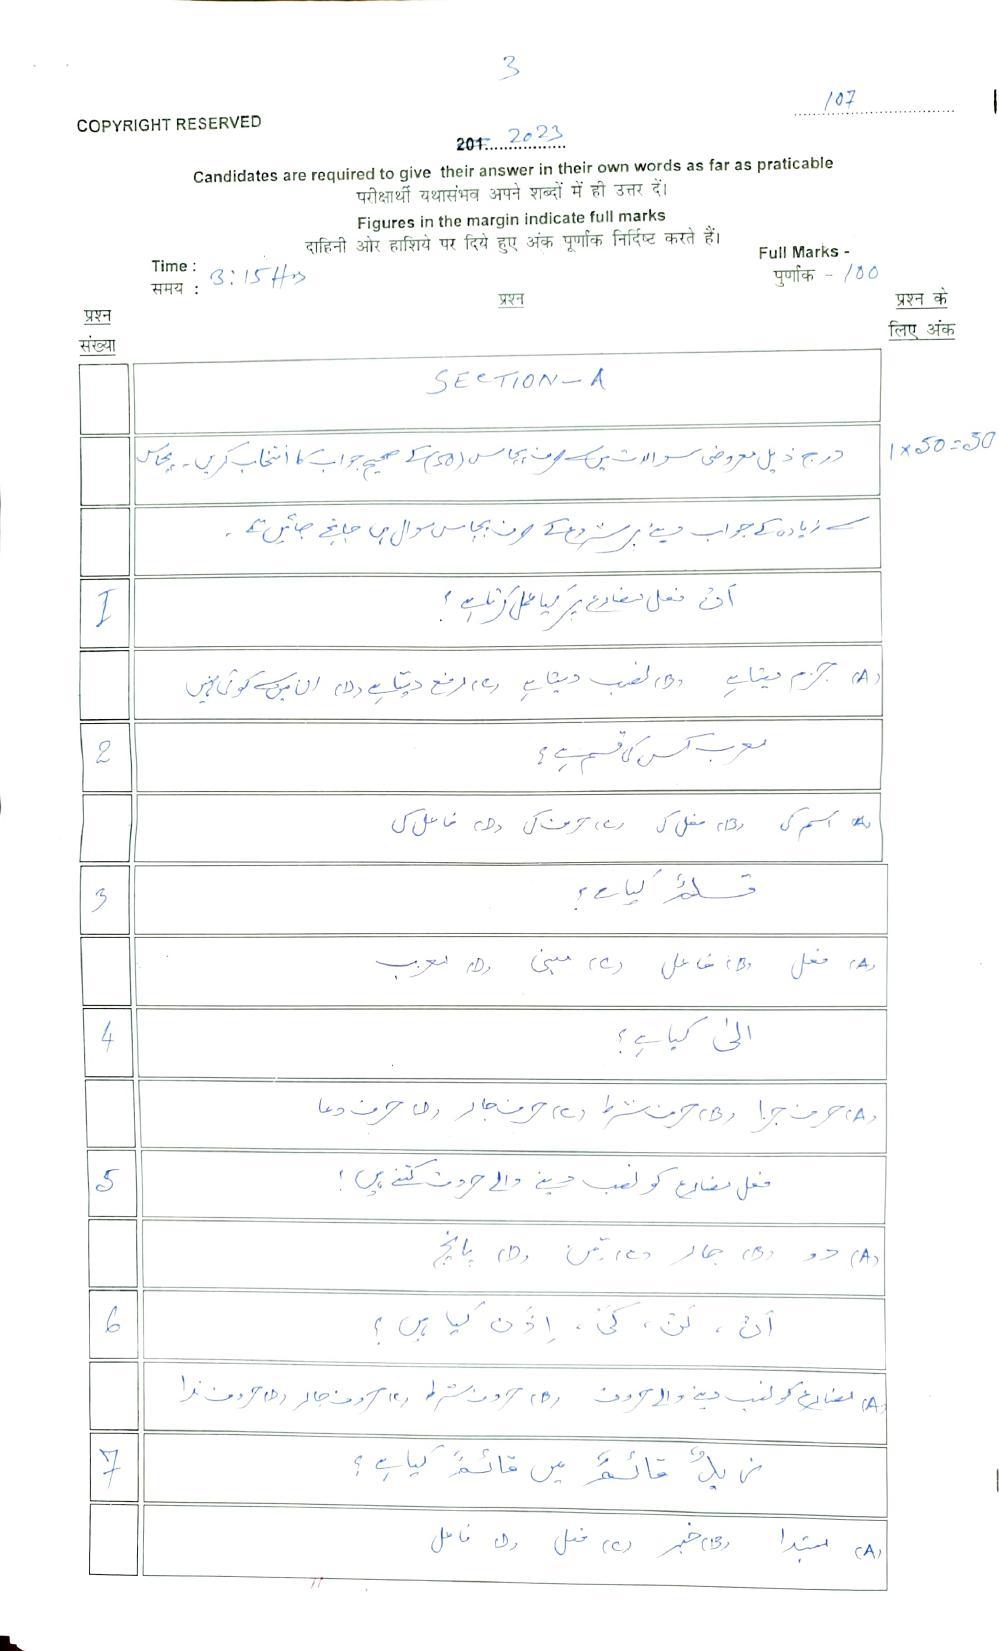 3
107
COPYRIGHT RESERVED
201 2023
Candidates are required to give their answer in their own words as far as praticable
परीक्षार्थी यथासंभव अपने शब्दों में ही उत्तर दें।
Figures in the margin indicate full marks
दाहिनी ओर हाशिये पर दिये हुए अंक पूर्णांक निर्दिष्ट करते हैं।
Time : 3:15 Hrs
समय :
Full Marks -
पुर्णांक - 100
प्रश्न संख्या
प्रश्न
प्रश्न के लिए अंक
SECTION-A
درج ذیل معروضی سوالات میں سے صرف پچاس (50) کے صحیح جواب کا انتخاب کریں۔ پچاس
1×50=50
سے زیادہ کے جواب دینے پر شروع کے صرف پچاس سوال ہی جانچے جائیں گے۔
1 اَنْ فعل مضارع پر کیا عمل کرتا ہے؟
(A) جزم دیتا ہے (B) نصب دیتا ہے (C) رفع دیتا ہے (D) ان میں سے کوئی نہیں
2 معرب کس کی قسم ہے؟
(A) اسم کی (B) فعل کی (C) حرف کی (D) فاعل کی
3 قلمٌ کیا ہے؟
(A) فعل (B) فاعل (C) مبنی (D) معرب
4 الیٰ کیا ہے؟
(A) حرف جزا (B) حرف شرط (C) حرف جار (D) حرف دعا
5 فعل مضارع کو نصب دینے والے حروف کتنے ہیں؟
(A) دو (B) چار (C) تین (D) پانچ
6 اَنْ ، لَنْ ، کَیْ ، اِذَن کیا ہیں؟
(A) مضارع کو نصب دینے والے حروف (B) حروف شرط (C) حروف جار (D) حروف ندا
7 زیدٌ قائمٌ میں قائمٌ کیا ہے؟
(A) مبتدا (B) خبر (C) فعل (D) فاعل